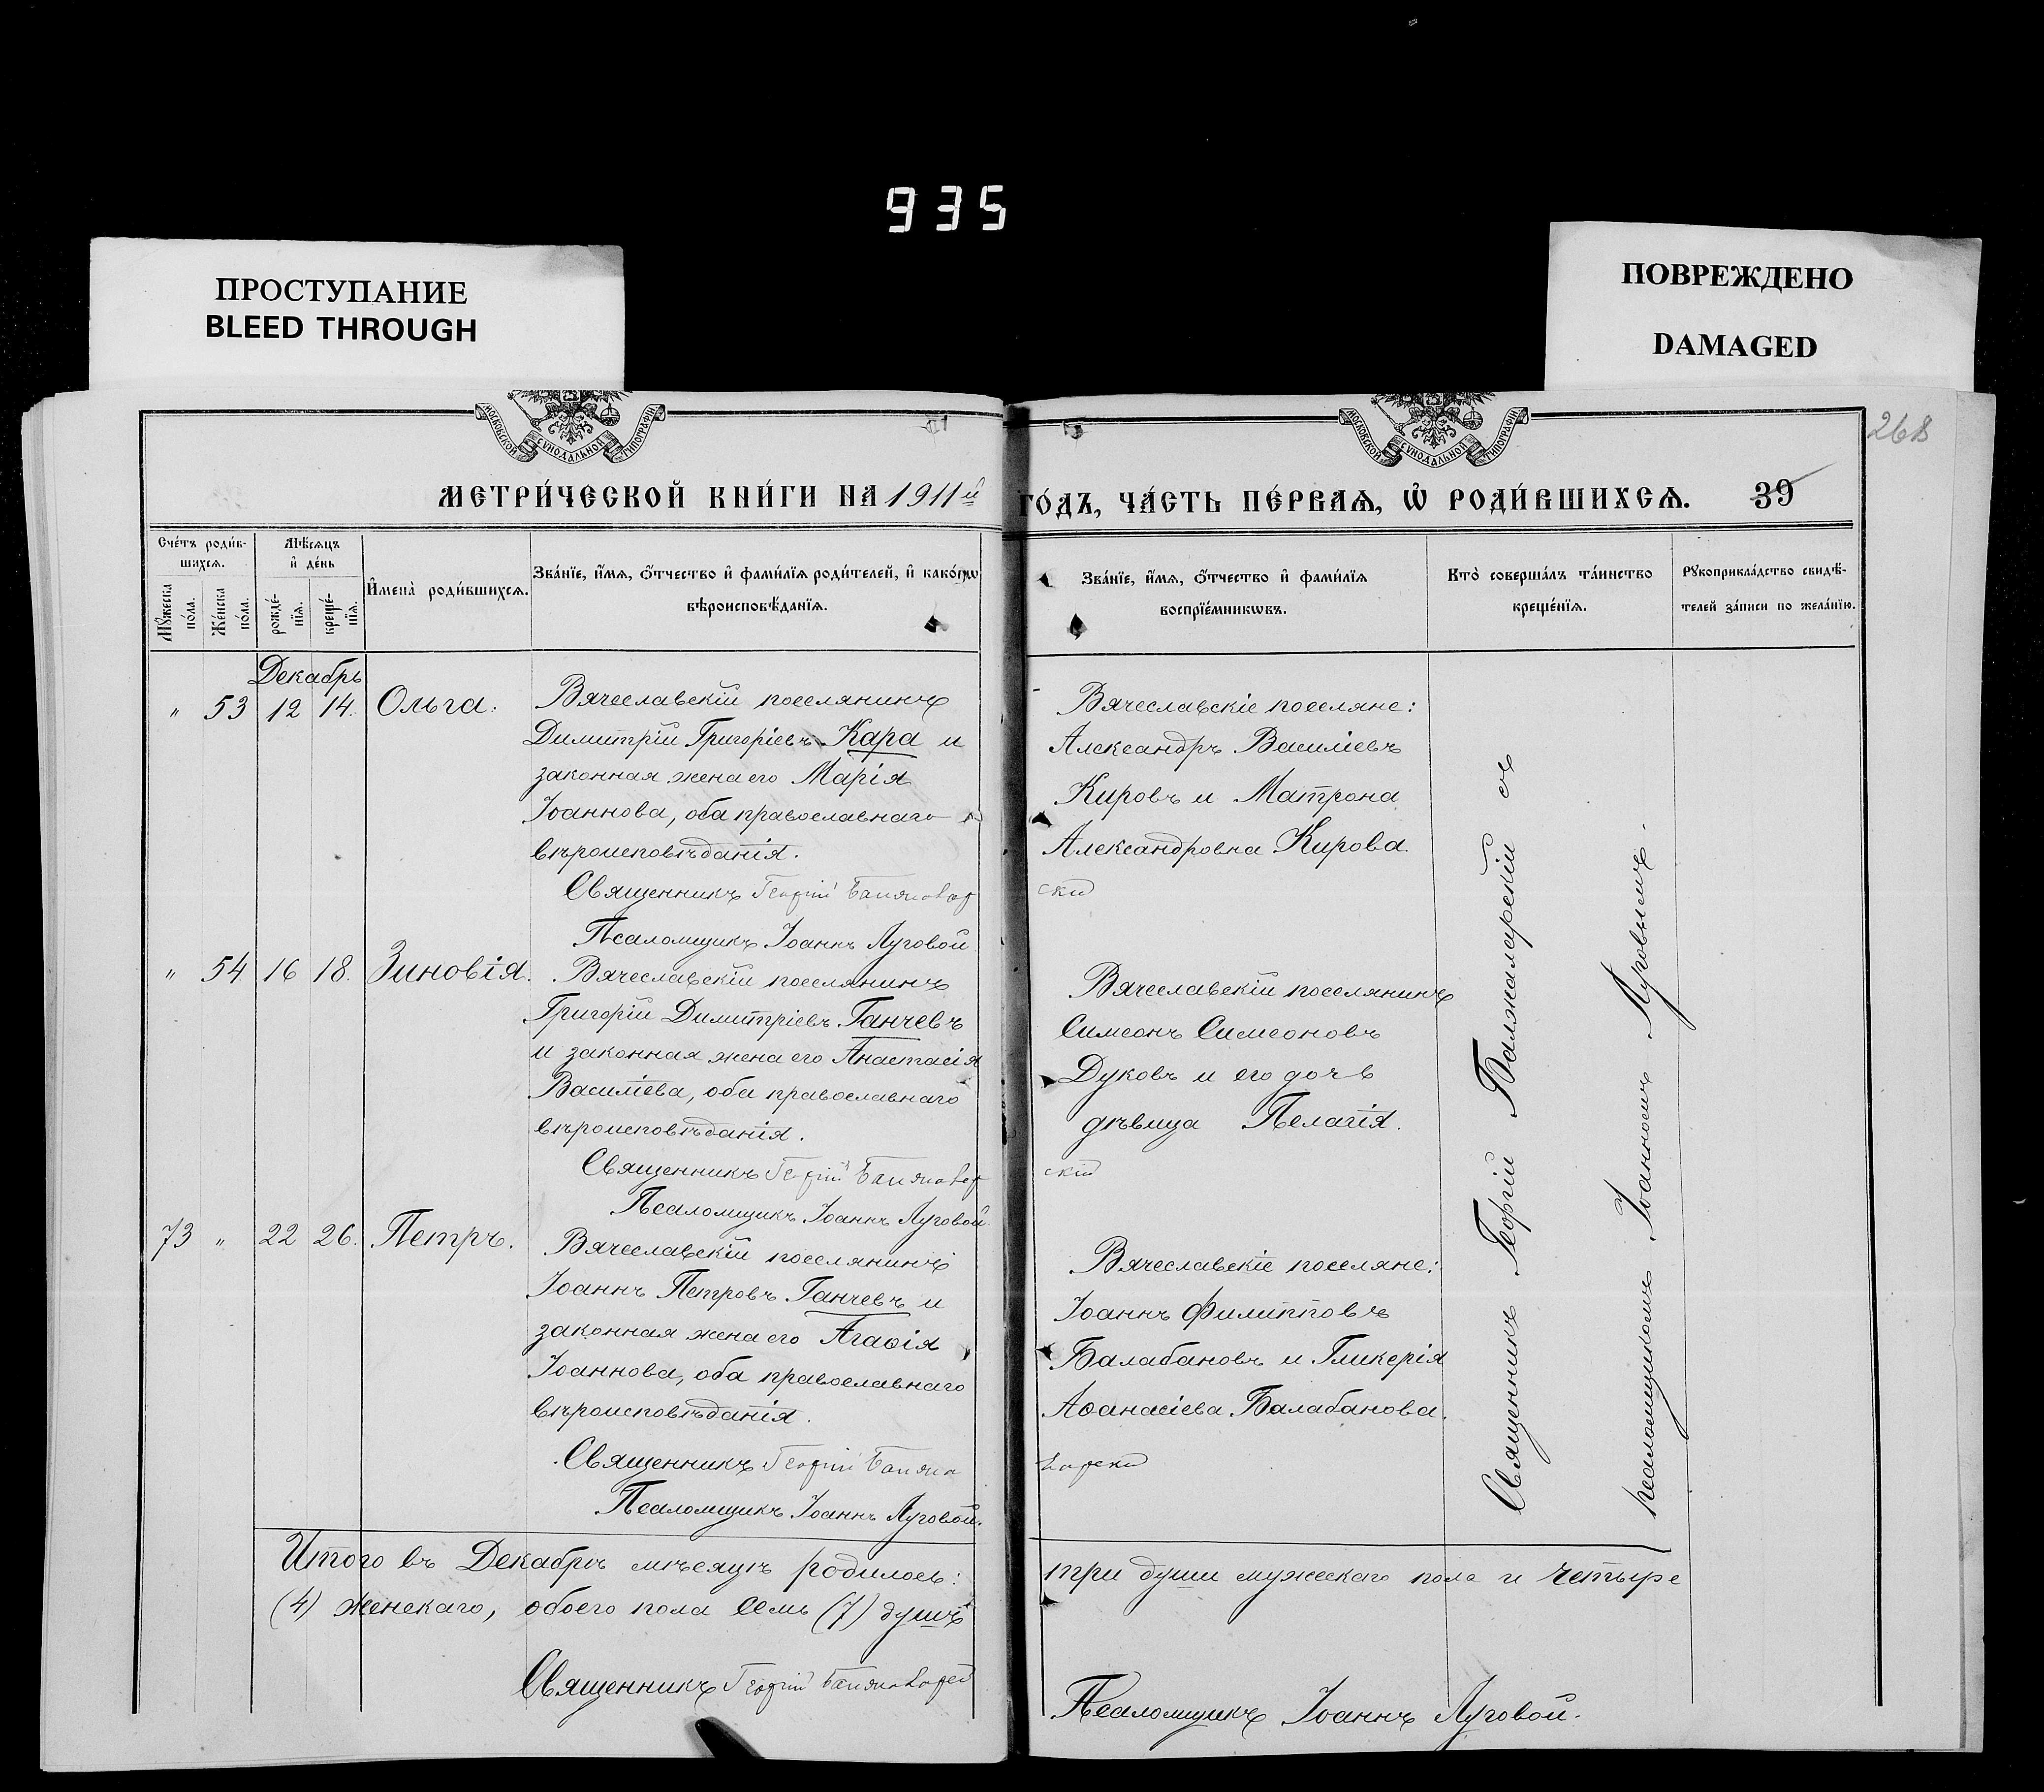 935
ПРОСТУПАНИЕ
BLEED THROUGH
ПОВРЕЖДЕНО
DAMAGED
МОСКОВСКОЙ СѴНОДАЛЬНОЙ ТИПОГРАФІИ
МОСКОВСКОЙ СѴНОДАЛЬНОЙ ТИПОГРАФІИ
268
МЕТРИ́ЧЕСКОЙ КНИ́ГИ НА 1911й ГО́ДЪ, ЧА́СТЬ ПЕ́РВАѦ, Ѡ҆ РОДИ́ВШИХСѦ. 39
Сче́тъ роди́в-
шихсѧ.
Мꙋ́жеска
по́ла.
Же́нска
по́ла.
Мѣ́сѧцъ
и҆ де́нь
рожде́-
нїѧ.
креще́-
нїѧ.
И҆мена̀ роди́вшихсѧ.
Зва́нїе, и҆́мѧ, ѻ҆́тчество и҆ фами́лїѧ роди́телей, и҆ како́гѡ
вѣроисповѣ́данїѧ.
Зва́нїе, и҆́мѧ, ѻ҆́тчество и҆ фами́лїѧ
воспрїе́мникѡвъ.
Кто̀ соверша́лъ та́инство
креще́нїѧ.
Рꙋкоприкла́дство свидѣ́-
телей за́писи по жела́нїю.
Декабрь
" 53 12 14. Ольга.
Вячеславскій поселянинъ
Димитрій Григоріевъ Кара и
законная жена его Марія
Іоаннова, оба православнаго
вѣроисповѣданія.
Священникъ Георгій
Псаломщикъ Іоаннъ Луговой
Вячеславскіе поселяне:
Александръ Василіевъ
Кировъ и Матрона
Александровна Кирова.
скій
" 54. 16 18. Зиновія.
Вячеславскій поселянинъ
Григорій Димитріевъ Ганчевъ
и законная жена его Анастасія
Василіева, оба православнаго
вѣроисповѣданія.
Священникъ Георгій
Псаломщикъ Іоаннъ Луговой.
Вячеславскій поселянинъ
Симеонъ Симеоновъ
Дуковъ и его дочь
дѣвица Пелагія.
скій
73 " 22 26. Петръ.
Вячеславскій поселянинъ
Іоаннъ Петровъ Ганчевъ и
законная жена его Агаѳія
Іоаннова, оба православнаго
вѣроисповѣданія.
Священникъ Георгій
Псаломщикъ Іоаннъ Луговой.
Вячеславскіе поселяне:
Іоаннъ Филипповъ
Балабановъ и Гликерія
Аѳанасіева Балабанова.
Священникъ Георгій съ
псаломщикомъ Іоанномъ Луговымъ.
Итого въ Декабрѣ мѣсяцѣ родилось: три души мужескаго пола и четыре
(4) женскаго, обоего пола семь (7) душъ
Священникъ Георгій
Псаломщикъ Іоаннъ Луговой.